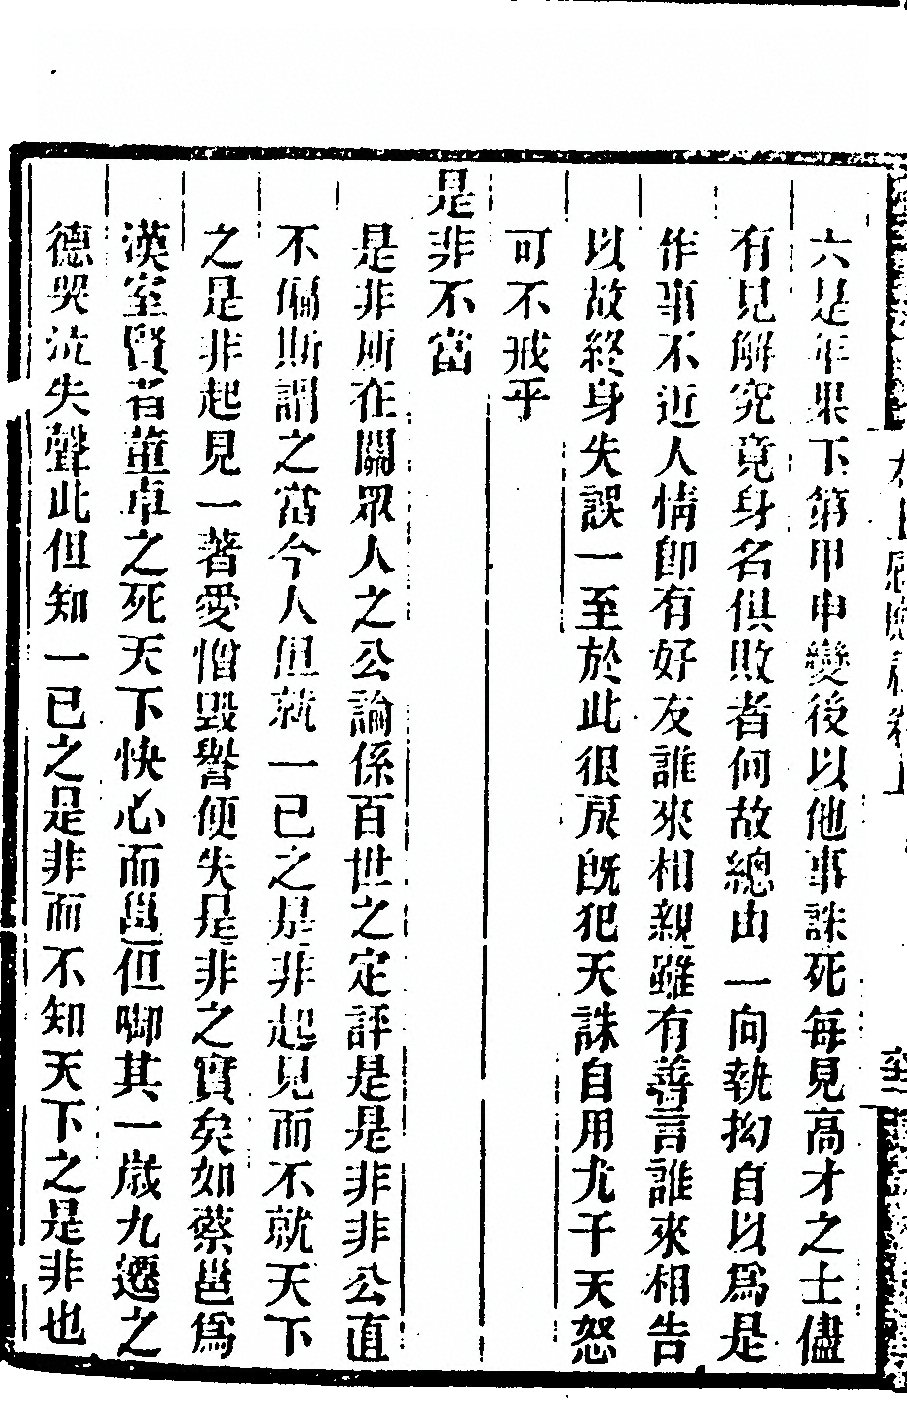 六是年果下第甲申變後以他事誅死每見高才之士儘
有見解究竟身名俱敗者何故總由一向執拗自以爲是
作事不近人情卽有好友誰來相親雖有善言誰來相告
以故終身失誤一至於此很戾旣犯天誅自用尤干天怒
可不戒乎
是非不當
是非所在關眾人之公論係百世之定評是是非非公直
不偏斯謂之當今人但就一已之是非起見而不就天下
之是非起見一著愛憎毀譽便失是非之實矣如蔡邕爲
漢室賢者董卓之死天下快心而邕但啣其一歲九遷之
德哭泣失聲此但知一已之是非而不知天下之是非也